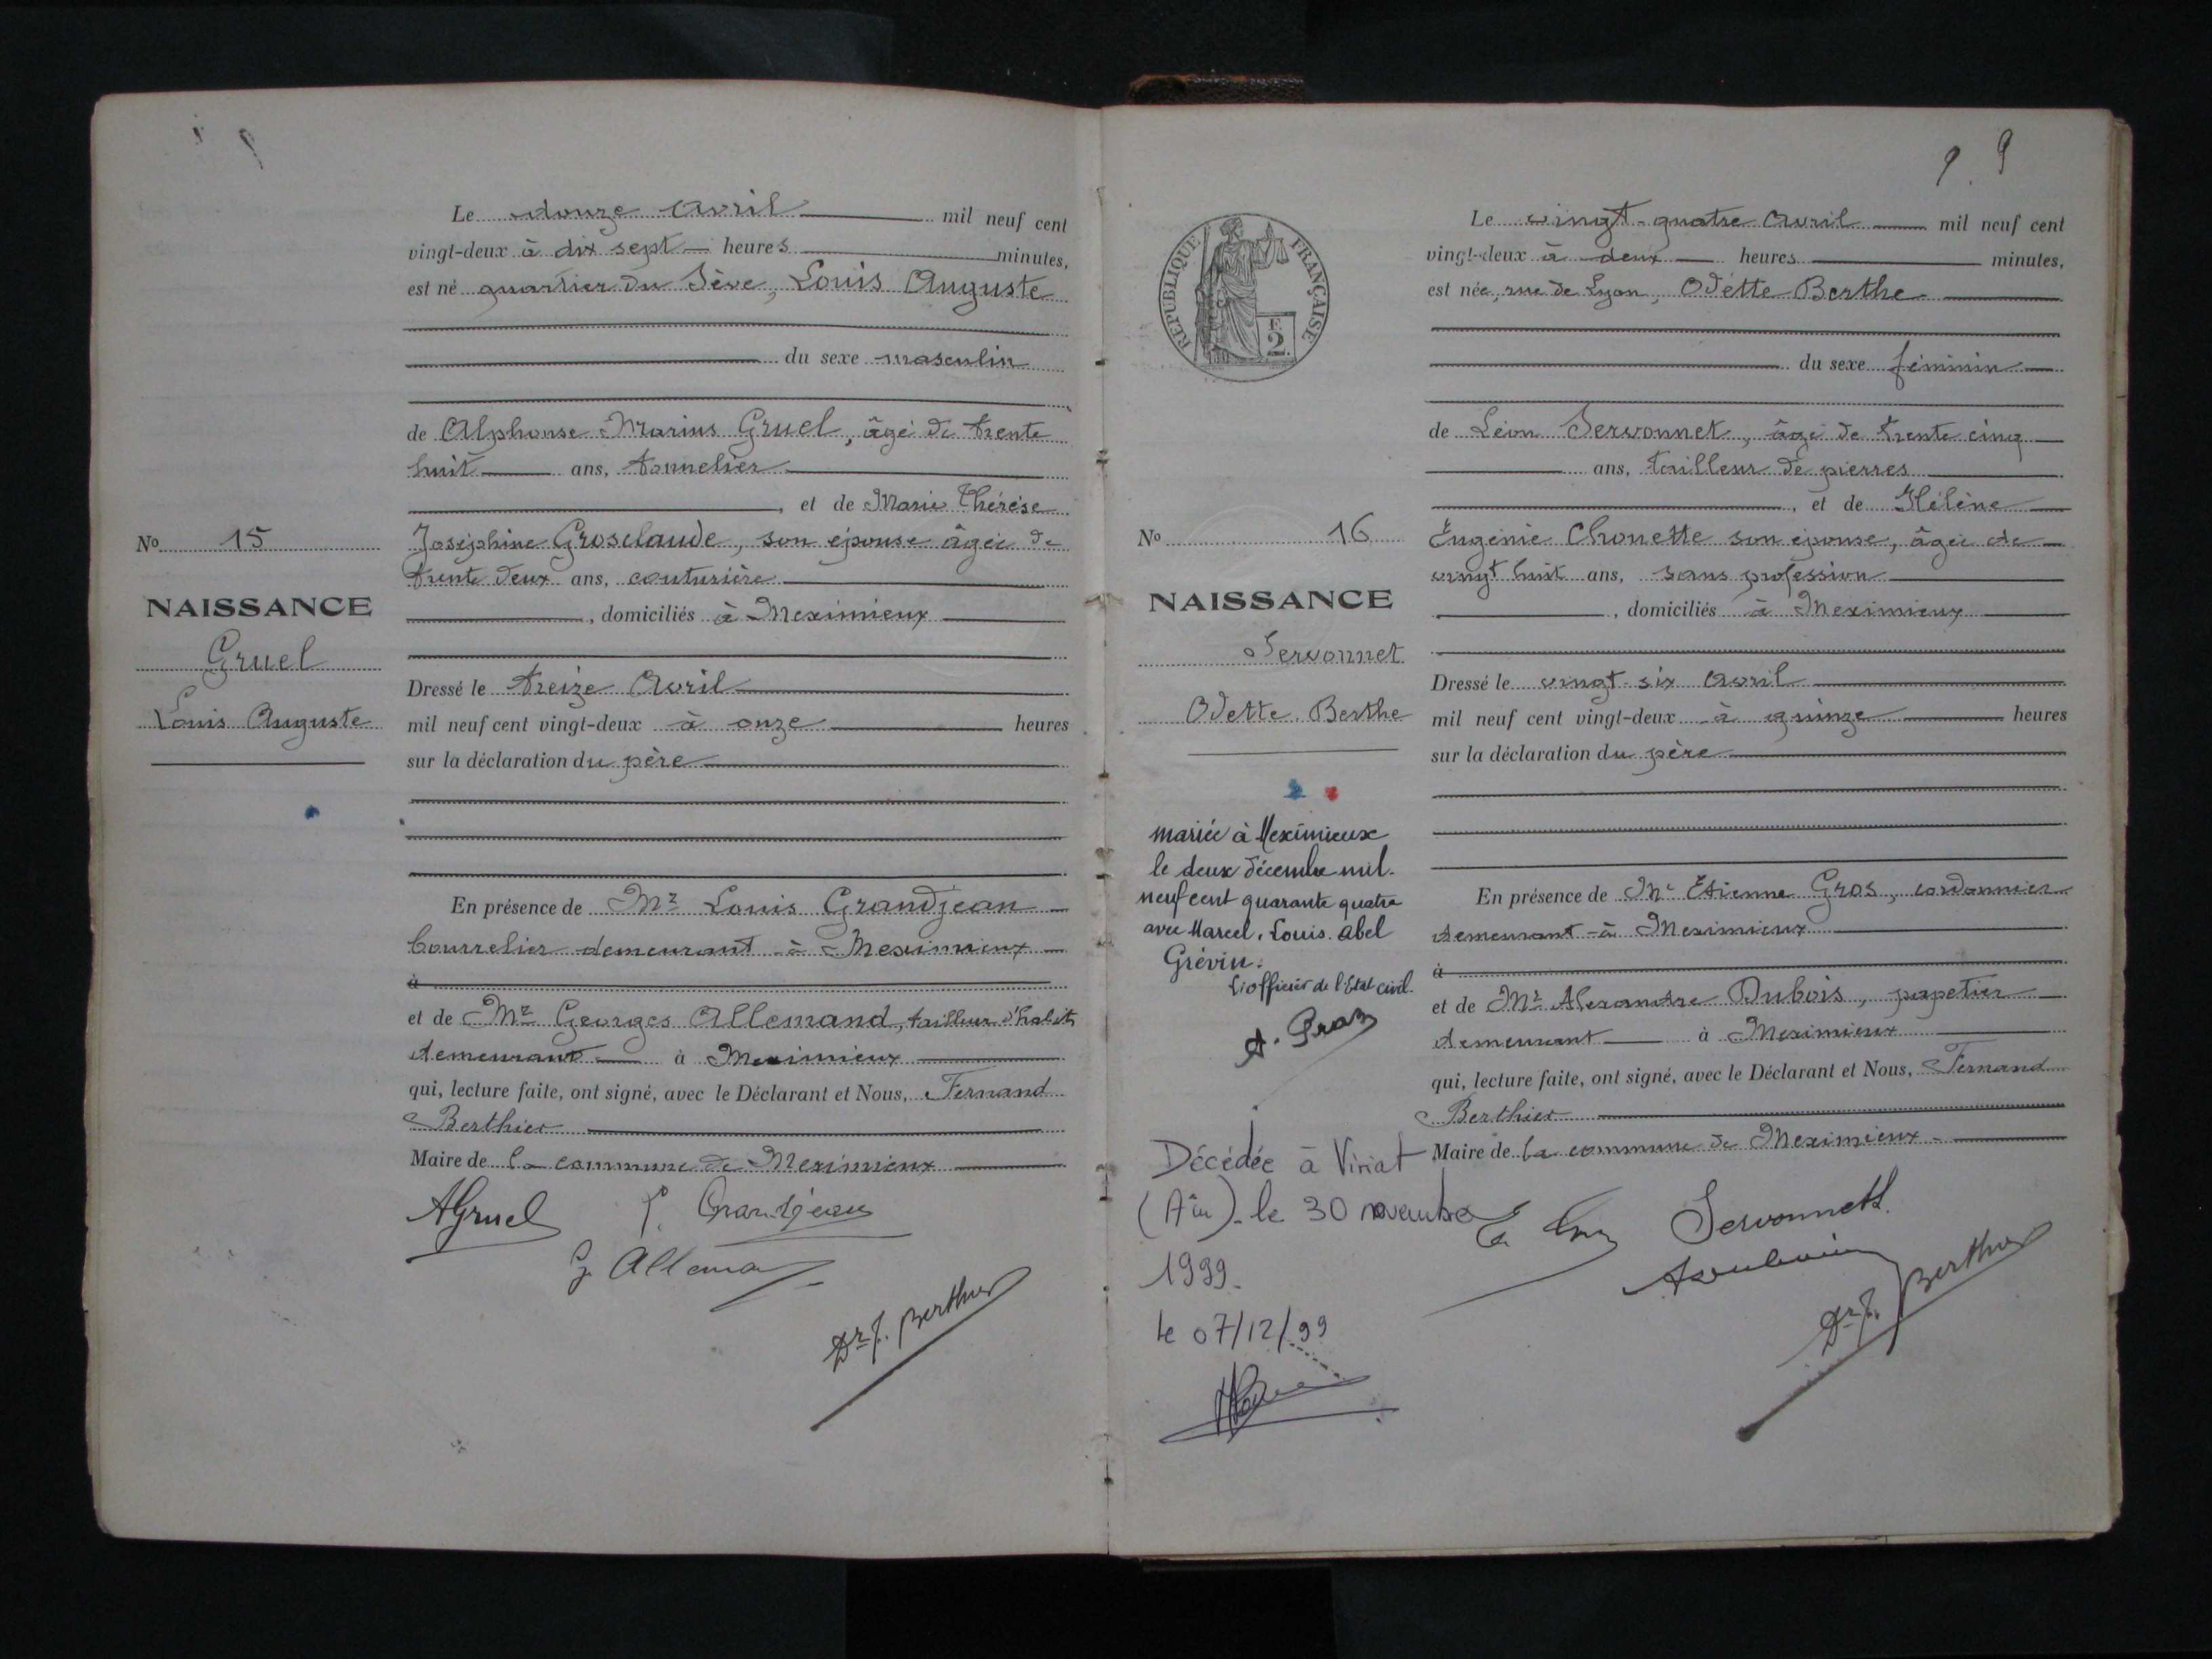 Le douze Avril mil neuf cent
vingt-deux à dix sept heures minutes,
est né quartier du Sève, Louis Auguste
du sexe masculin
de Alphonse Marius Gruel, âgé de trente
huit ans, tonnelier
, et de Marie Thérèse
No 15
Joséphine Grosclaude, son épouse âgée de
trente deux ans, couturière
NAISSANCE
, domiciliés à Meximieux
Gruel
Louis Auguste
Dressé le treize Avril
mil neuf cent vingt-deux à onze heures
sur la déclaration du père
En présence de Mr Louis Grandjean
bourrelier demeurant à Meximieux
à
et de Mr Georges Allemand, tailleur d'habits
demeurant à Meximieux
qui, lecture faite, ont signé, avec le Déclarant et Nous, Fernand
Berthier
Maire de la commune de Meximieux
AGruel
Grandjean
G Alleman
Dr F. Berthier
9 9
REPUBLIQUE FRANÇAISE
2 F.
Le vingt-quatre Avril mil neuf cent
vingt-deux à deux heures minutes,
est née, rue de Lyon, Odette Berthe
du sexe féminin
de Léon Servonnet, âgé de trente cinq
ans, tailleur de pierres
, et de Hélène
No 16
Eugénie Chonette son épouse, âgée de
vingt huit ans, sans profession
NAISSANCE
, domiciliés à Meximieux
Servonnet
Odette Berthe
Dressé le vingt-six Avril
mil neuf cent vingt-deux à quinze heures
sur la déclaration du père
mariée à Meximieux
le deux décembre mil
neuf cent quarante quatre
avec Marcel, Louis Abel
Grévin.
L'officier de l'Etat civil
A. Praz
En présence de Mr Etienne Gros, cordonnier
demeurant à Meximieux
à
et de Mr Alexandre Dubois, papetier
demeurant à Meximieux
qui, lecture faite, ont signé, avec le Déclarant et Nous, Fernand
Berthier
Maire de la commune de Meximieux
Décédée à Viriat
(Ain) - le 30 novembre
1999.
le 07/12/99
Servonnet L.
Dr F. Berthier